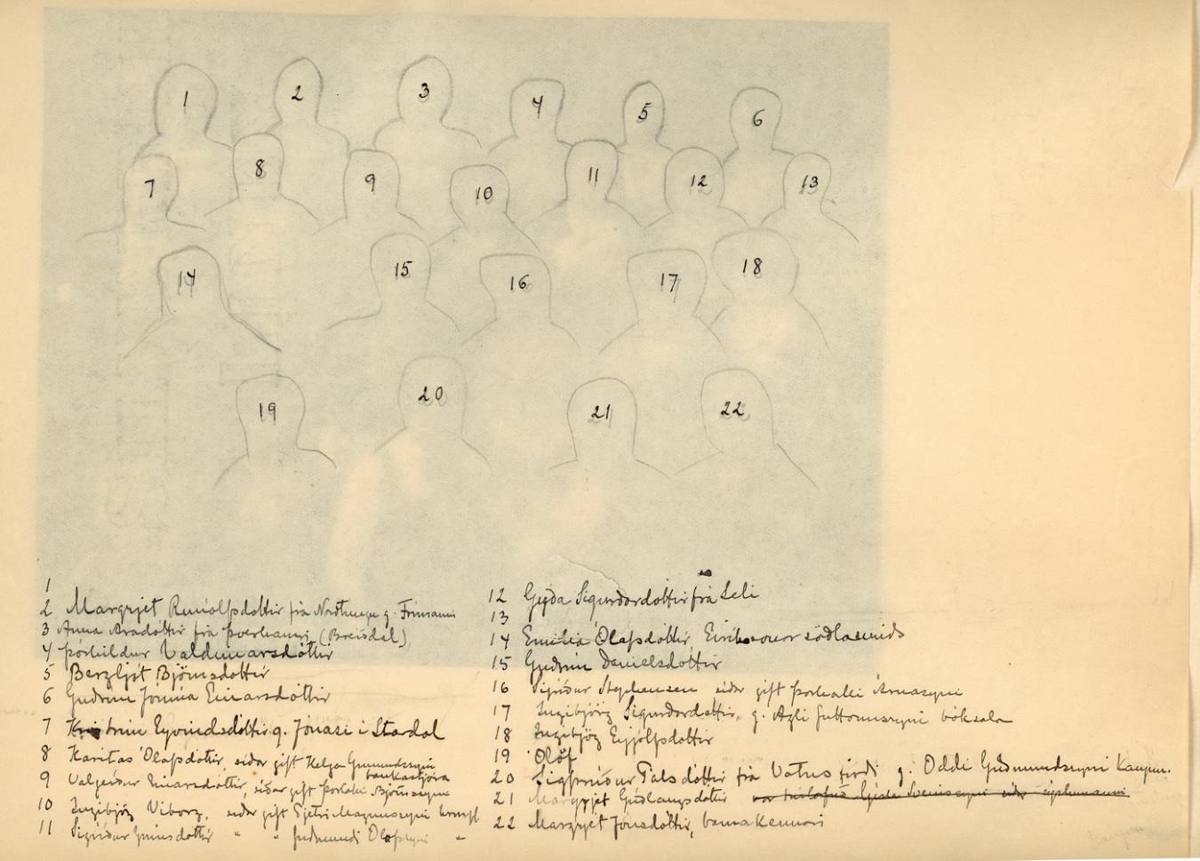 1 2 3 4 5 6
7 8 9 10 11 12 13
14 15 16 17 18
19 20 21 22
1
2 Margrjet Runólfsdóttir frá g.
3 Anna Aradóttir frá Þverhamri (Breiðdal)
4 Þórhildur Valdimarsdóttir
5 Bergljót Björnsdóttir
6 Guðrún Jónína Einarsdóttir
7 Eyvindsdóttir g. Jónasi í Stardal
8 Karitas Ólafsdóttir, síðar gift Helga Guðmundssyni bankastjóra
9 Valgerður Einarsdóttir, síðar gift Þorláki Björnssyni
10 Ingibjög Viborg, síðar gift Pjetri Magnússyni
11 Sigríður " " Guðmundi Ólafssyni "
12 Gyða Sigurðardóttir frá Seli
13
14 Emilía Ólafsdóttir, Eiríkssonar söðlasmiðs
15 Guðrún Daníelsdóttir
16 Sigríður Stephensen síðar gift Þorláki Árnasyni
17 Ingibjörg Sigurðardóttir, g. Agli Guttormssyni bóksala
18 Ingibjög Eyjólfsdóttir
19 Ólöf
20 Sigþrúður Pálsdóttir frá Vatnsfirði g. Oddi Guðmundssyni Kaupm.
21 Margrjet Guðlaugsdóttir
22 Margrjet Jónsdóttir, barnakennari